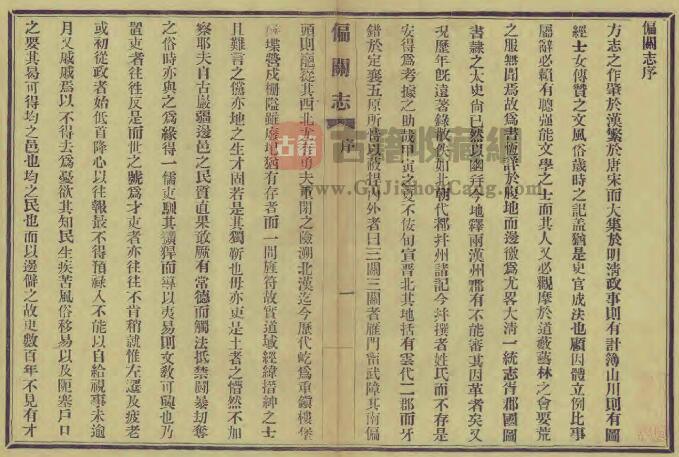 偏關志序
方志之作肇於漢繁於唐宋而大集於明清政事則有計簿山川則有圖
經士女傳贊之文風俗歲時之記蓋猶是史官成法也顧因體立例比事
屬辭必賴有聰強能文學之士而其人又必觀摩於道藪藝林之會要荒
之服無聞焉故為書恆詳於腹地而邊徼為尤畧大清一統志省郡國圖
書隸之太史尚已然以幽并今地釋兩漢州郡有不能審其因革者矣又
況歷年既遠著錄散佚如北朝代都并州諸記今并撰者姓氏而不存是
安得為考據之助哉甲寅之夏不佞旬宣晉北其地括有雲代二郡而牙
錯於定襄五原所恃以蔽捍內外者曰三關三關者雁門甯武障其南偏
偏關志 序 一
頭則巃嵸其西北尤重閉之險溯北漢迄今歷代屹為重鎮樓堡
堞營戍柵隘雖廢址猶有存者而一問旌符故實道域經緯搢紳之士
且難言之儻亦地之生才固若是其獨嗇也毋亦吏是土者之懵然不加
察耶夫自古嚴疆邊邑之民質直果敢厥有常德而觸法抵禁鬪暴劫奪
之俗時亦與之為緣得一儒吏馴其獷悍而導以夷易則文教可興也乃
置吏者往往反是而世之號為才吏者亦往往不肯稍就惟左遷及疲老
或初從政者始低首降心以往報最不得預祿入不能以自給視事未逾
月又戚戚焉以不得去為憂欲其知民生疾苦風俗移易以及阨塞戶口
之要其易可得均之邑也均之民也而以邊僻之故更數百年不見有才
古籍收藏網
www.GuJiShouCang.com